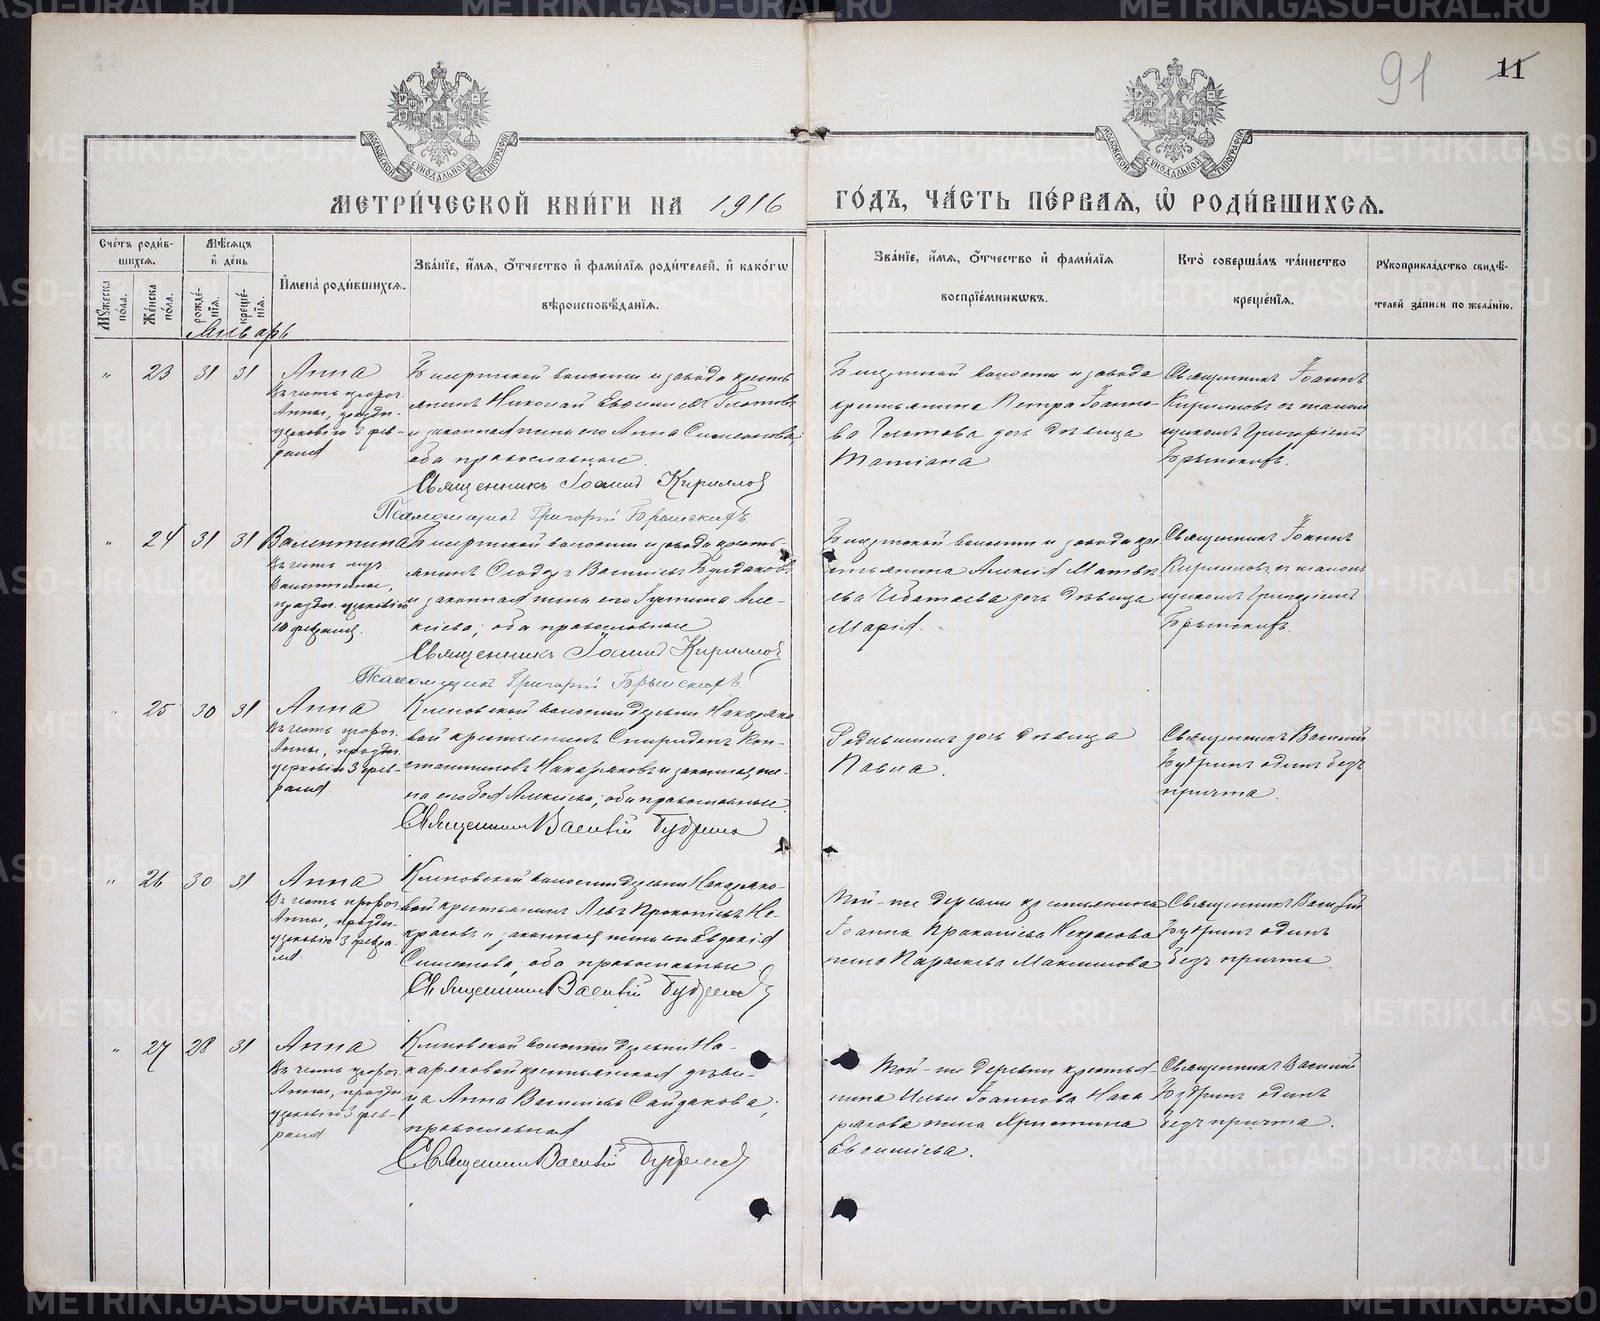 METRIKI.GASU-URAL.RU
91 11
МОСКОВСКОЙ СѴНОДАЛЬНОЙ ТИПОГРАФІИ
МОСКОВСКОЙ СѴНОДАЛЬНОЙ ТИПОГРАФІИ
МЕТРИ́ЧЕСКОЙ КНИ́ГИ НА 1916 ГО́ДЪ, ЧА́СТЬ ПЕ́РВАѦ, Ѽ РОДИ́ВШИХСѦ.
Сче́тъ роди́в-
шихсѧ.
Мꙋ́жеска по́ла.
Же́нска по́ла.
Мѣ́сѧцъ
и҆ де́нь
рожде́-
нїѧ.
креще́-
нїѧ.
И҆мена̀ роди́вшихсѧ.
Зва́нїе, и҆́мѧ, ѻ҆́тчество и҆ фами́лїѧ роди́телей, и҆ како́гѡ
вѣроисповѣ́данїѧ.
Зва́нїе, и҆́мѧ, ѻ҆́тчество и҆ фами́лїѧ
воспрїе́мникѡвъ.
Кто̀ соверша́лъ та́инство
креще́нїѧ.
Рꙋкоприкла́дство свидѣ́-
телей за́писи по жела́нїю.
Январь
" 23 31 31
Анна
Въ честь пророч.
Анны, праздн.
церковію 3 фев-
раля
Бисертской волости и завода кресть-
янинъ Николай Евфиміевъ Глотовъ
и законная жена его Анна Симеонова,
оба православные.
Священникъ Іоаннъ Кирилловъ
Псаломщикъ Григорій Брызскихъ
Бисертской волости и завода
крестьянина Петра Іоанно-
ва Глотова дочь дѣвица
Татіана.
Священникъ Іоаннъ
Кирилловъ съ псалом-
щикомъ Григоріемъ
" 24 31 31
Валентина
Въ честь муч.
Валентины,
праздн. церковію
10 февраля.
Бисертской волости и завода кресть-
янинъ Ѳеодоръ Васильевъ
и законная жена его Устина Але-
ксіева; оба православные
Священникъ Іоаннъ Кирилловъ
Псаломщикъ Григорій
Бисертской волости и завода кре-
стьянина Алексія Матвѣ-
ева дочь дѣвица
Марія.
Священникъ Іоаннъ
Кирилловъ съ псалом-
щикомъ Григоріемъ
" 25 30 31
Анна
Въ честь пророч.
Анны, праздн.
церковію 3 фев-
раля
Кленовской волости деревни Накоряко-
вой крестьянинъ Спиридонъ Кон-
стантиновъ Накоряковъ и законная же-
на его Зоя Алексіева; оба православные
Священникъ Василій Будринъ
Родившихъ дочь дѣвица
Павла.
Священникъ Василій
Будринъ одинъ безъ
причта.
" 26 30 31
Анна
Въ честь пророч.
Анны, праздн.
церковію 3 февра-
ля
Кленовской волости деревни Накоряко-
вой крестьянинъ Левъ Прокопіевъ Не-
красовъ и законная жена его Евдокія
Симеонова; оба православные
Священникъ Василій Будринъ
Той-же деревни крестьянина
Іоанна Прокопіева Некрасова
жена Параскева Максимова
Священникъ Василій
Будринъ одинъ
безъ причта.
" 27 28 31
Анна
Въ честь пророч.
Анны, праздн.
церковію 3 фев-
раля
Кленовской волости деревни На-
коряковой крестьянская дѣви-
ца Анна Васильева Сайдакова;
православная
Священникъ Василій Будринъ
Той-же деревни крестья-
нина Ильи Іоаннова Нако-
рякова жена Христина
Евфиміева.
Священникъ Василій
Будринъ одинъ
безъ причта.